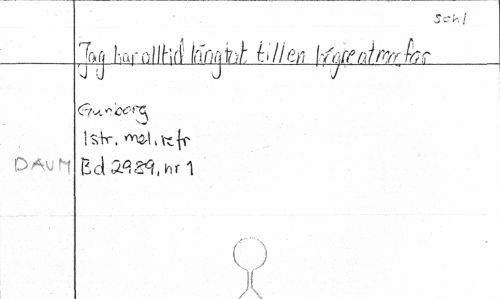 schl
Jag har alltid längtat till en högre atmosfär
Gunborg
1 str. mel. refr
DAUM Bd 2989, nr 1